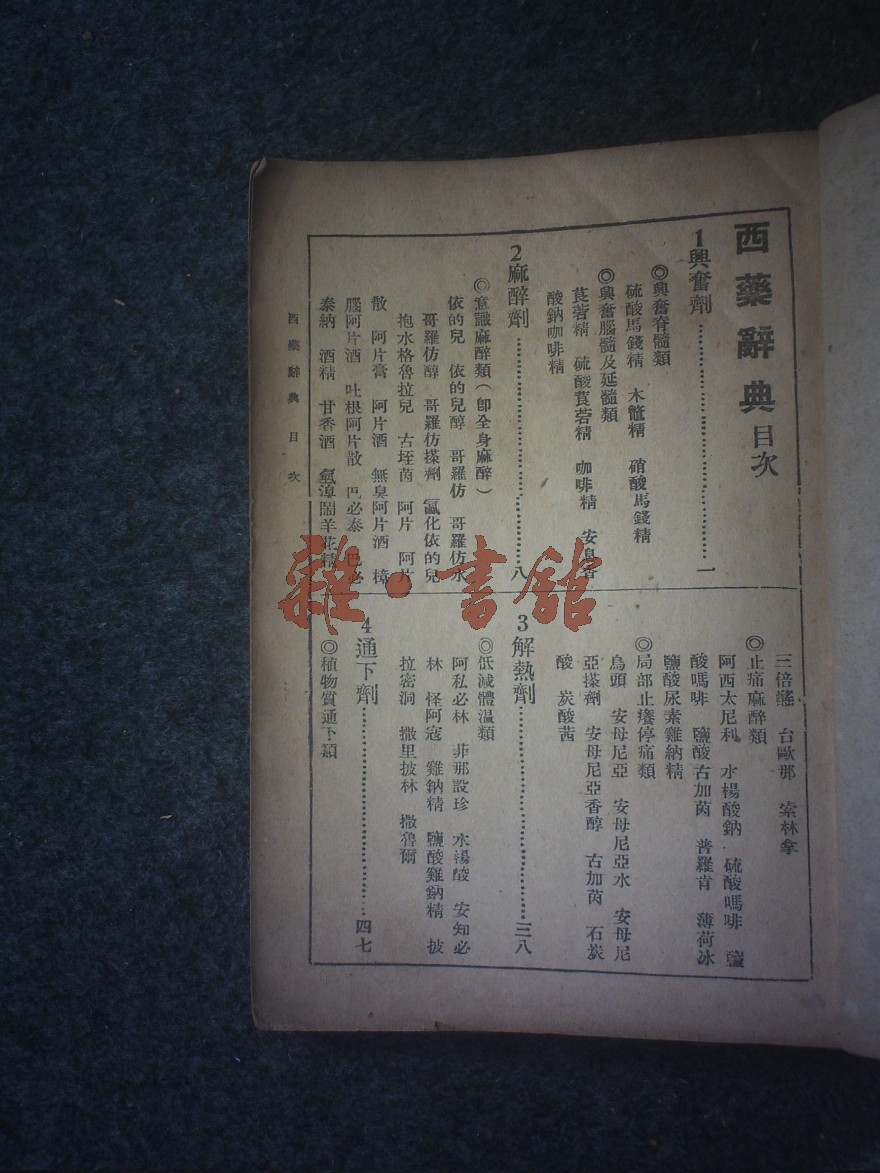 西藥辭典目次
1興奮劑……一
◎興奮脊髓類
硫酸馬錢精　木鼈精　硝酸馬錢精
◎興奮腦髓及延髓類
莨菪精　硫酸莨菪精　咖啡精　安息香
酸鈉咖啡精
2麻醉劑……八
◎意識麻醉類（卽全身麻醉）
依的兒　依的兒醇　哥羅仿　哥羅仿水
哥羅仿醇　哥羅仿搽劑　氯化依的兒
抱水格魯拉兒　古垤茵　阿片　阿片
散　阿片膏　阿片酒　無臭阿片酒　樟
腦阿片酒　吐根阿片散　巴必泰　巴必
泰納　酒精　甘香酒　鬧羊花精
三倍　台歐那　索林拿
◎止痛麻醉類
阿西太尼利　水楊酸鈉　硫酸嗎啡　鹽
酸嗎啡　鹽酸古加茵　普羅肯　薄荷冰
鹽酸尿素雞納精
◎局部止癢停痛類
烏頭　安母尼亞　安母尼亞水　安母尼
亞搽劑　安母尼亞香醇　古加茵　石炭
酸　炭酸茜
3解熱劑……三八
◎低減體温類
阿私必林　非那設珍　水楊酸　安知必
林　怪阿寇　雞鈉精　鹽酸雞鈉精　披
拉密洞　撒里披林　撒魯爾
4通下劑……四七
◎植物質通下類
西藥辭典　目次
雜·書館